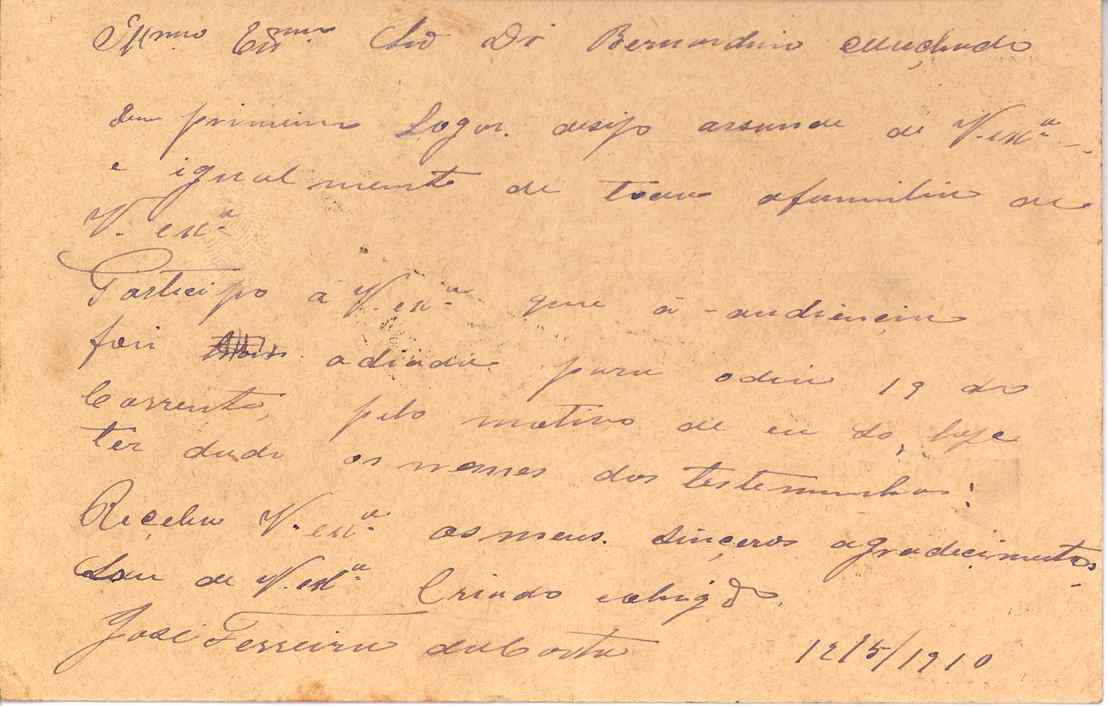 Exmo Exmo Snr Dr Bernardino Machado
Em primeiro Logar desejo assaude de V. exª
e igualmente de toda afamilia de
V. exª
Participo á V. exª que á audiencia
foi adiada para odia 19 do
Corrente, pelo motivo de eu só hoje
ter dado os nomes das testemunhas:
Reçeba V. exª os meus sinçeros agradecimentos
Sou de V. exª Criado obrigdo
José Ferreira daCosta 12/5/1910